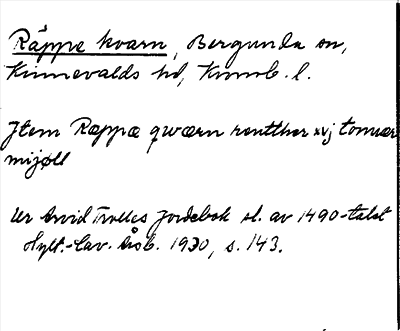 Räppe kvarn, Bergunda sn,
Kinnevalds hd, Kronob. l.
Jtem Ræppæ qwærn rentther xvj tonnær
mijøll
Ur Arvid Trolles jordebok sl. av 1490-talet
Hylt.-Cav. Årsb. 1930, s. 143.